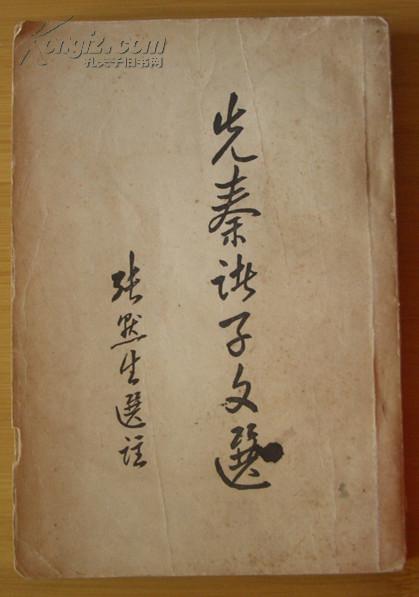 先秦诸子文選
張默生選註
Kongfz.com
孔夫子旧书网